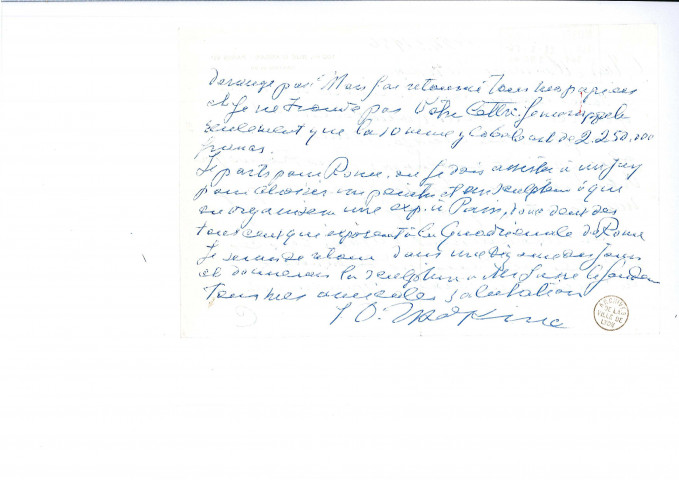 pas Mais j'ai retourné tous mes papiers
et je ne trouve pas votre lettre. Je me rappelle
seulement que la somme globale est de 2.250.000
francs.
Je pars pour Rome, où je dois assister à un jury
pour choisir un peintre et un sculpteur à qui
on organisera une exp. à Paris, tous deux des
tous ceux qui exposent à la Quadriennale de Rome
Je serai de retour dans une dizaine des jours
et donnerai la sculpture à
Tous mes amicales salutations
O. Zadkine
ARCHIVES
DE LA
VILLE DE
LYON